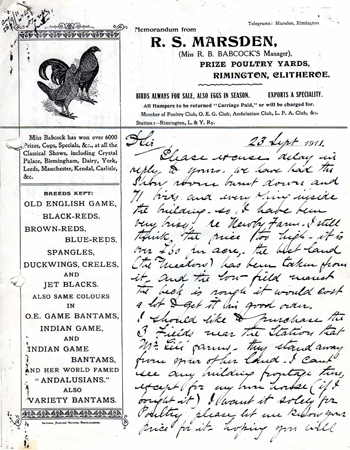 Telegrams: Marsden, Rimington.
Memorandum from
R. S. MARSDEN,
(Miss R. B. BABCOCK'S Manager),
PRIZE POULTRY YARDS,
RIMINGTON, CLITHEROE.
BIRDS ALWAYS FOR SALE, ALSO EGGS IN SEASON. EXPORTS A SPECIALITY.
All Hampers to be returned "Carriage Paid," or will be charged for.
Member of Poultry Club, O. E. G. Club, Andalusian Club, L. P. A. Club, &c.
Station:—Rimington, L. & Y. Ry.
Miss Babcock has won over 6000
Prizes, Cups, Specials, &c., at all the
Classical Shows, including Crystal
Palace, Birmingham, Dairy, York,
Leeds, Manchester, Kendal, Carlisle,
&c.
BREEDS KEPT:
OLD ENGLISH GAME,
BLACK-REDS,
BROWN-REDS,
BLUE-REDS,
SPANGLES,
DUCKWINGS, CRELES,
AND
JET BLACKS.
ALSO SAME COLOURS
IN
O.E. GAME BANTAMS,
INDIAN GAME,
AND
INDIAN GAME
BANTAMS,
AND HER WORLD FAMED
"ANDALUSIANS."
ALSO
VARIETY BANTAMS.
23 Sept 1911.
Please excuse delay in
reply to yours. we have had the
Show room burnt down, and
71 birds and every thing inside
the building. so I have been
very busy, re Newby Farm. I still
think the price too high. it is
over £50 an acre, the best land
(the Meadow) has been taken from
it, and the field nearest
the beck is rough it would cost
a lot to get it in good order.
I should like to purchase the
3 Fields near the Station that
Mr farms. they stand away
from your other land. I cant
see any building frontage there,
except for my own house (if I
bought it) I want it solely for
Poultry, please let me know your
price for it. hoping you will